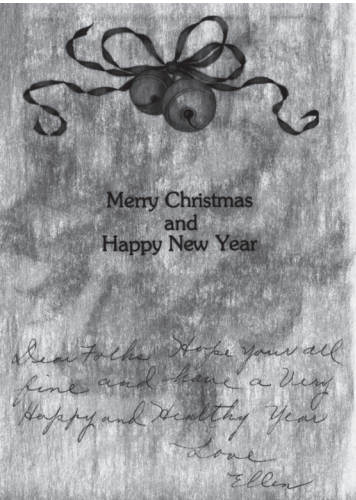 Merry Christmas
and
Happy New Year
Dear Folks Hope your all
fine and have a Very
Happy and Healthy Year
Love
Ellen